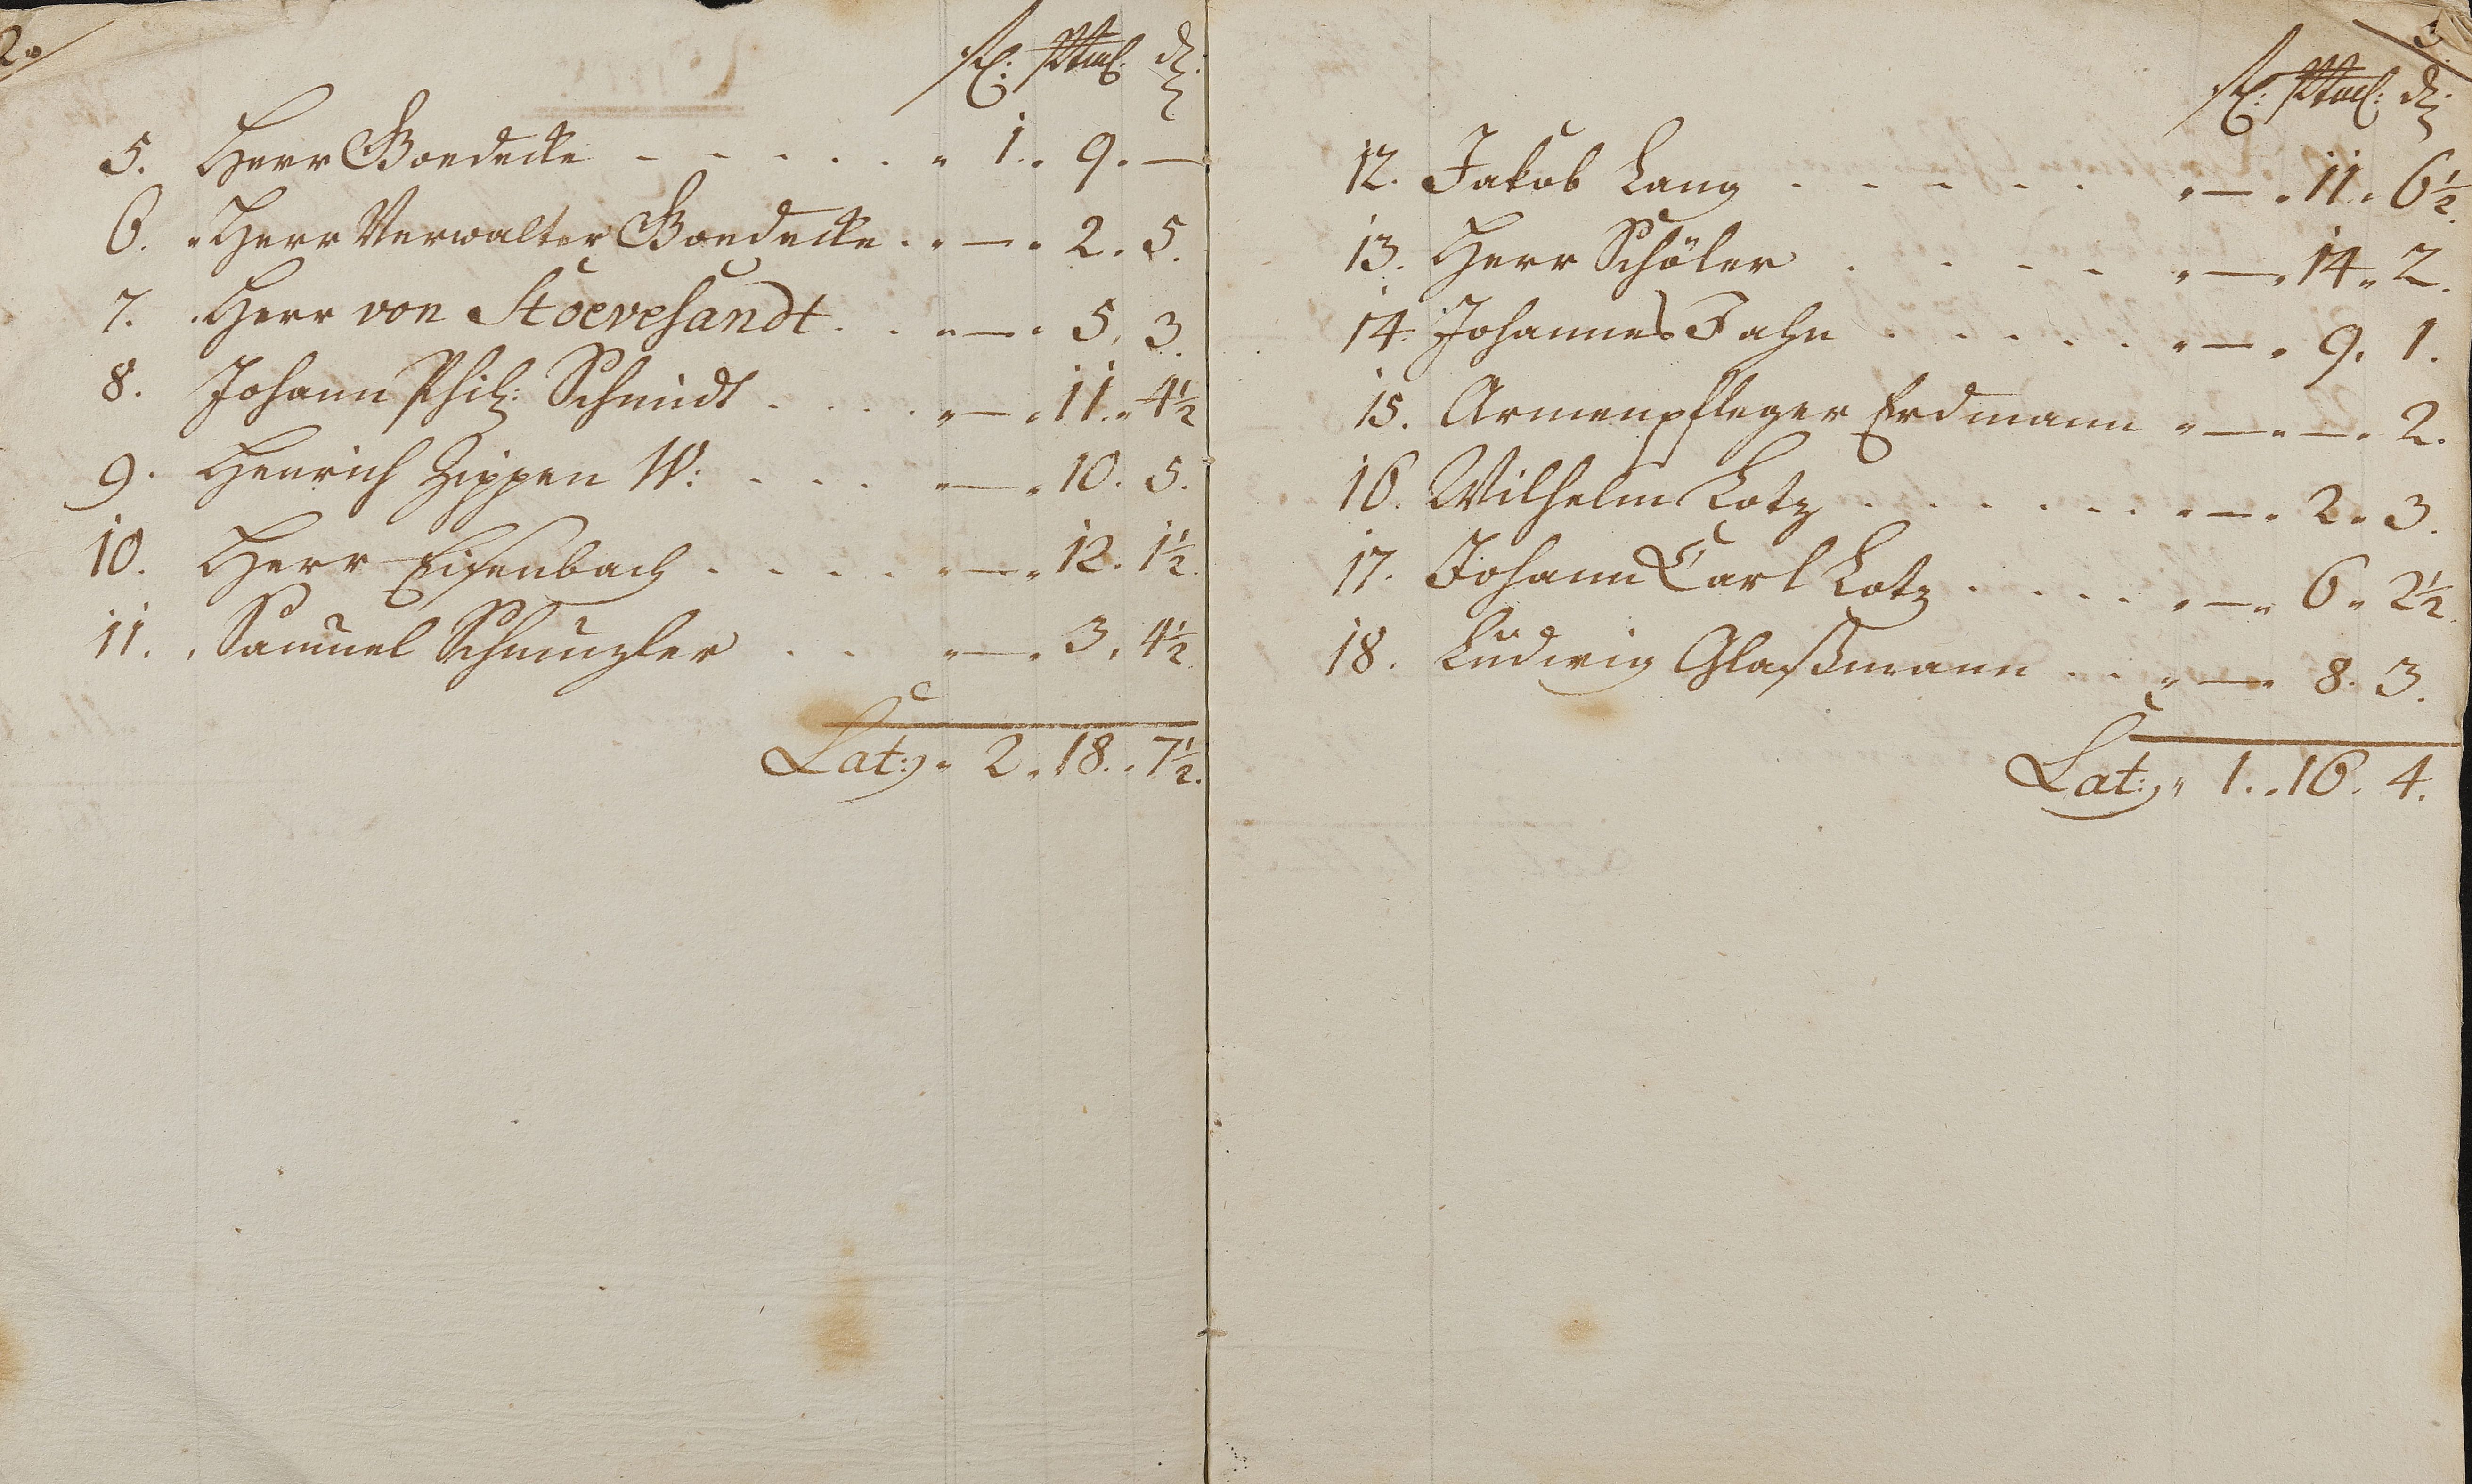 2.
fl: Stüb: d:
5. Herr Boedecke - - - - - - " 1. " 9. —
6. " Herr Verwalter Boedecke . " — " 2. 5.
7. Herr von Stoevesandt . . " — " 5. 3.
8. Johann Phil: Schmidt . . . . " — " 11. " 4½
9. Henrich Zippen W: . . . " — " 10. 5.
10. Herr Eisenbach . . . . " — " 12. 1½.
11. Samuel Schmuzler . . " — " 3. 4½.
Lat: " 2 " 18. " 7½.
3
12. Jakob Lang . . . . . " — " 11. " 6½.
13. Herr Schöler . . . . " — " 14 " 2.
14. Johannes Jahn . . . . . " — " 9. 1.
15. Armenpfleger Erdmann " — " — " 2.
16. Wilhelm Lotz . . . . . . " — " 2 " 3.
17. Johann Carl Lotz . . . . " — " 6 " 2½.
18. Ludwig Glaßmann . . " — " 8. 3.
Lat: " 1. " 16. 4.